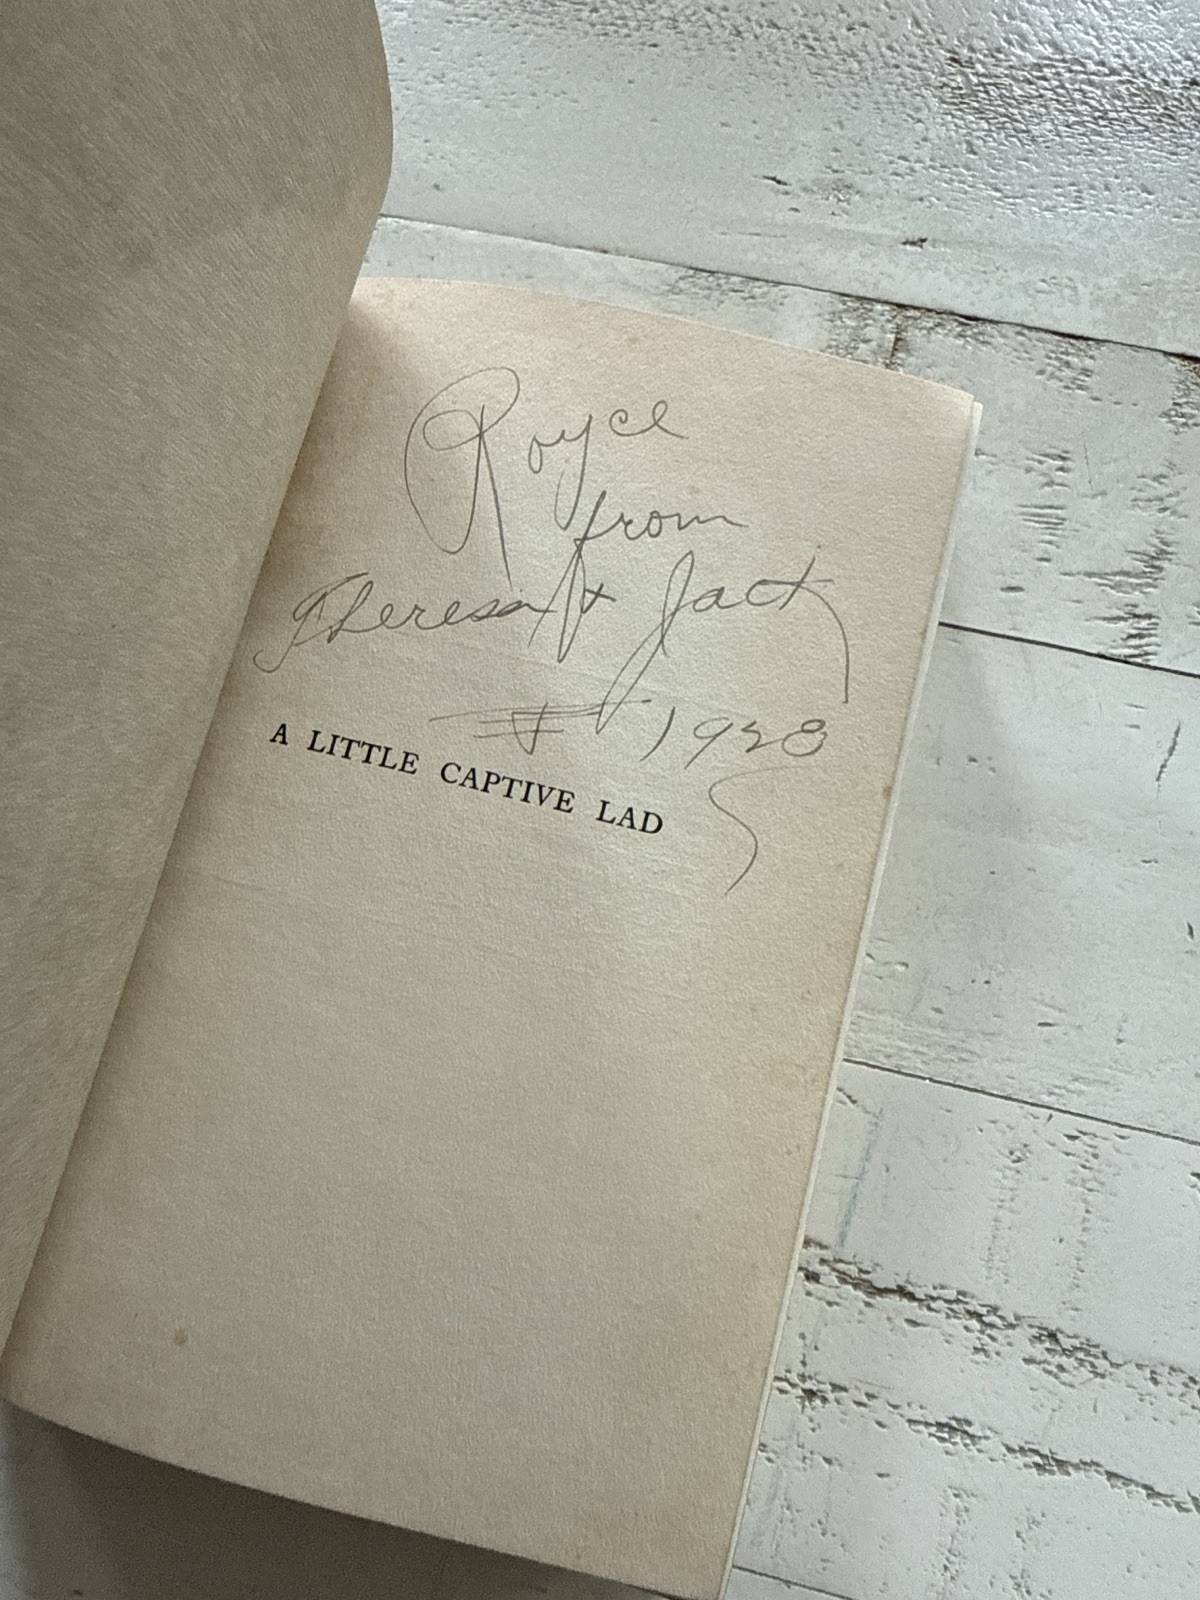 Royce
from
Theresa + Jack
1928
A LITTLE CAPTIVE LAD